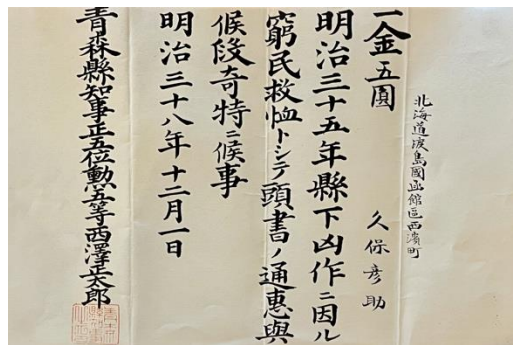 北海道渡島國函館區西濱町
久保彦助
一金五圓
明治三十五年縣下凶作ニ因ル
窮民救恤トシテ頭書ノ通惠與
候段奇特ニ候事
明治三十八年十二月一日
青森縣知事正五位勲五等西澤正太郎